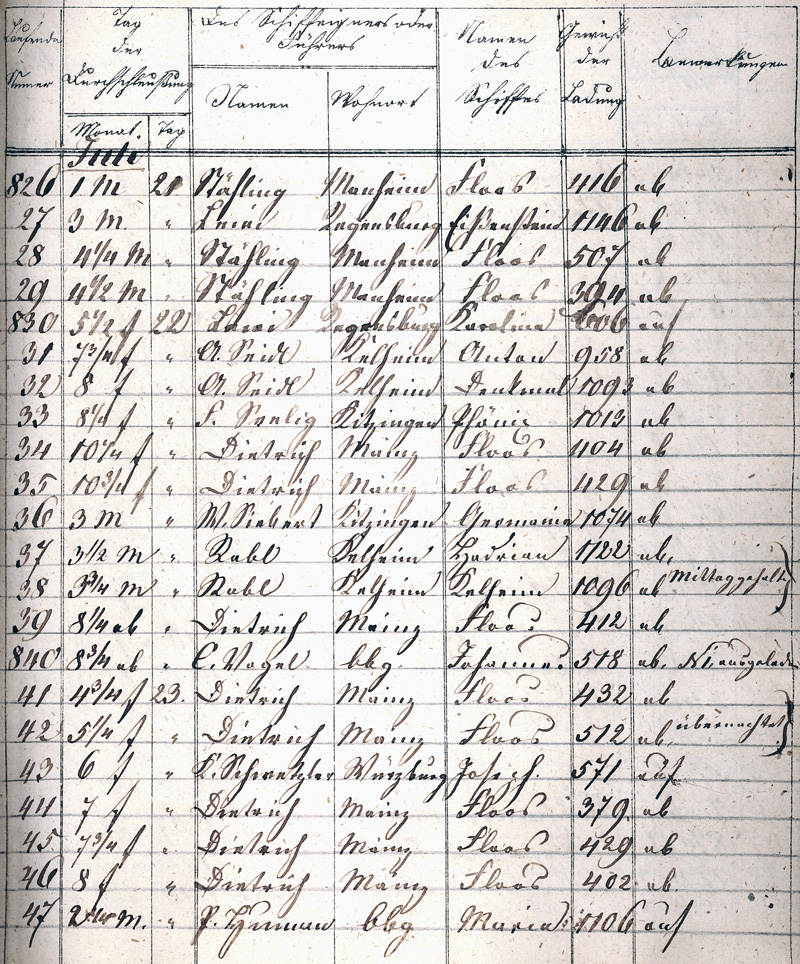 Laufende Numer | Tag der Durchschleußung | Des Schiffeigners oder Führers | Namen des Schiffes | Gewicht der Ladung | Bemerkungen
Monat. | Tag | Namen | Wohnort
Juli
826 1 M 21 Stähling Manheim Floos 416 ab
27 3 M. " Regensburg 1146 ab
28 4 1/4 M " Stähling Manheim Floos 507 ab
29 4 1/2 M " Stähling Manheim Floos ab
830 5 1/2 f 22 Regensburg Karolina auf
31 7 3/4 f " A. Seidl Kelheim Anton 958 ab
32 8 f " A. Seidl Kelheim Denkmal 1093 ab
33 8 1/4 f " F. Seelig Kitzingen Phönix 1013 ab
34 10 1/4 f " Dietrich Mainz Floos 404 ab
35 10 3/4 f " Dietrich Mainz Floos 429 ab
36 3 M " W. Siebert Kitzingen Germania 1074 ab
37 3 1/2 M " Rabl Kelheim Hadrian 1122 ab,
38 3 3/4 M " Rabl Kelheim Kelheim 1096 ab Mittaggehalt
39 8 1/4 ab " Dietrich Mainz Floos 412 ab
840 8 3/4 ab " C. Vogel bbg. Johannes 518 ab. ausgelade
41 4 3/4 f 23. Dietrich Mainz Floos 432 ab
42 5 1/4 f " Dietrich Mainz Floos 512 ab, übernachtet
43 6 f " K. Schwetzler Würzburg Joseph. 571 auf
44 7 f " Dietrich Mainz Floos 379 ab
45 7 3/4 f " Dietrich Mainz Floos 429 ab
46 8 f " Dietrich Mainz Floos 402 ab.
47 M. " P. Human bbg Maria 1106 auf